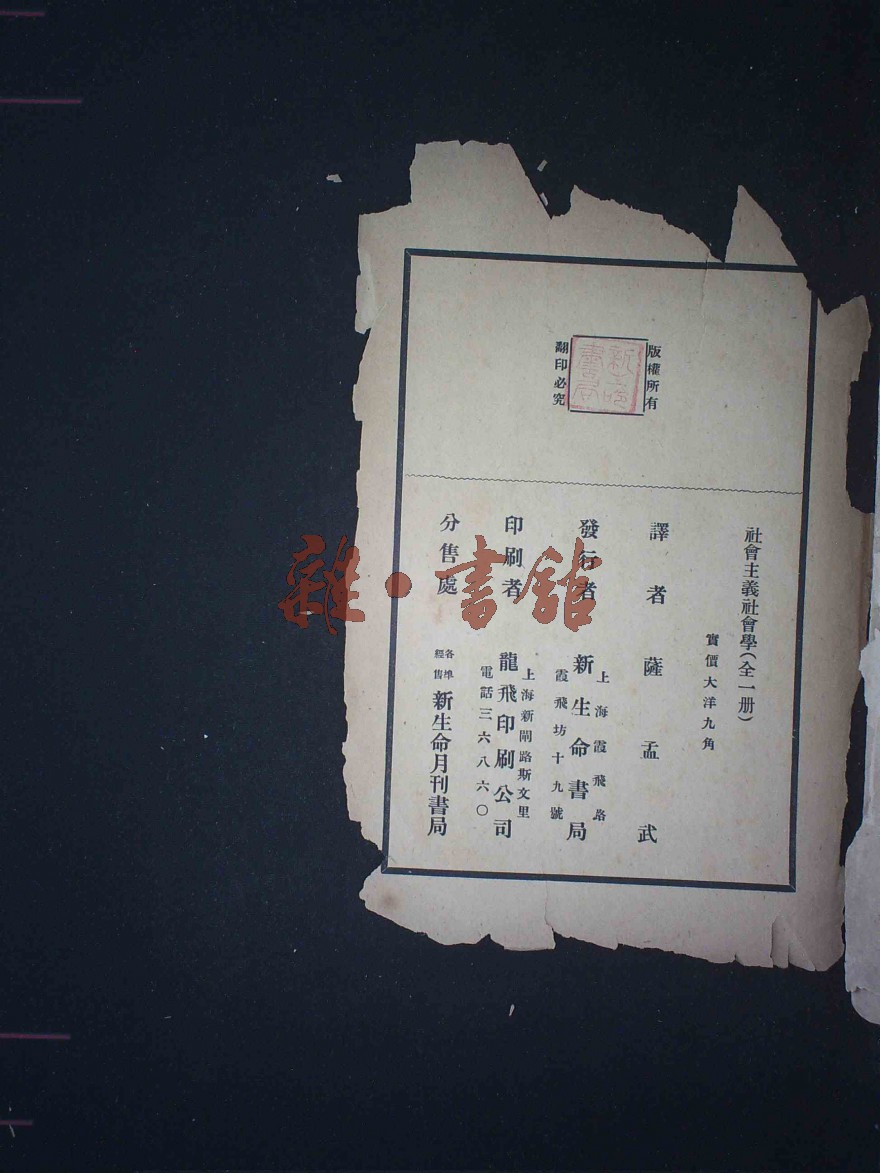 版權所有
翻印必究
社會主義社會學（全一册）
實價大洋九角
譯者 薩孟武
發行者
上海霞飛路
新生命書局
霞飛坊十九號
印刷者
上海新閘路斯文里
龍飛印刷公司
電話三六八六〇
分售處
各埠
經售
新生命月刊書局
雜·書館